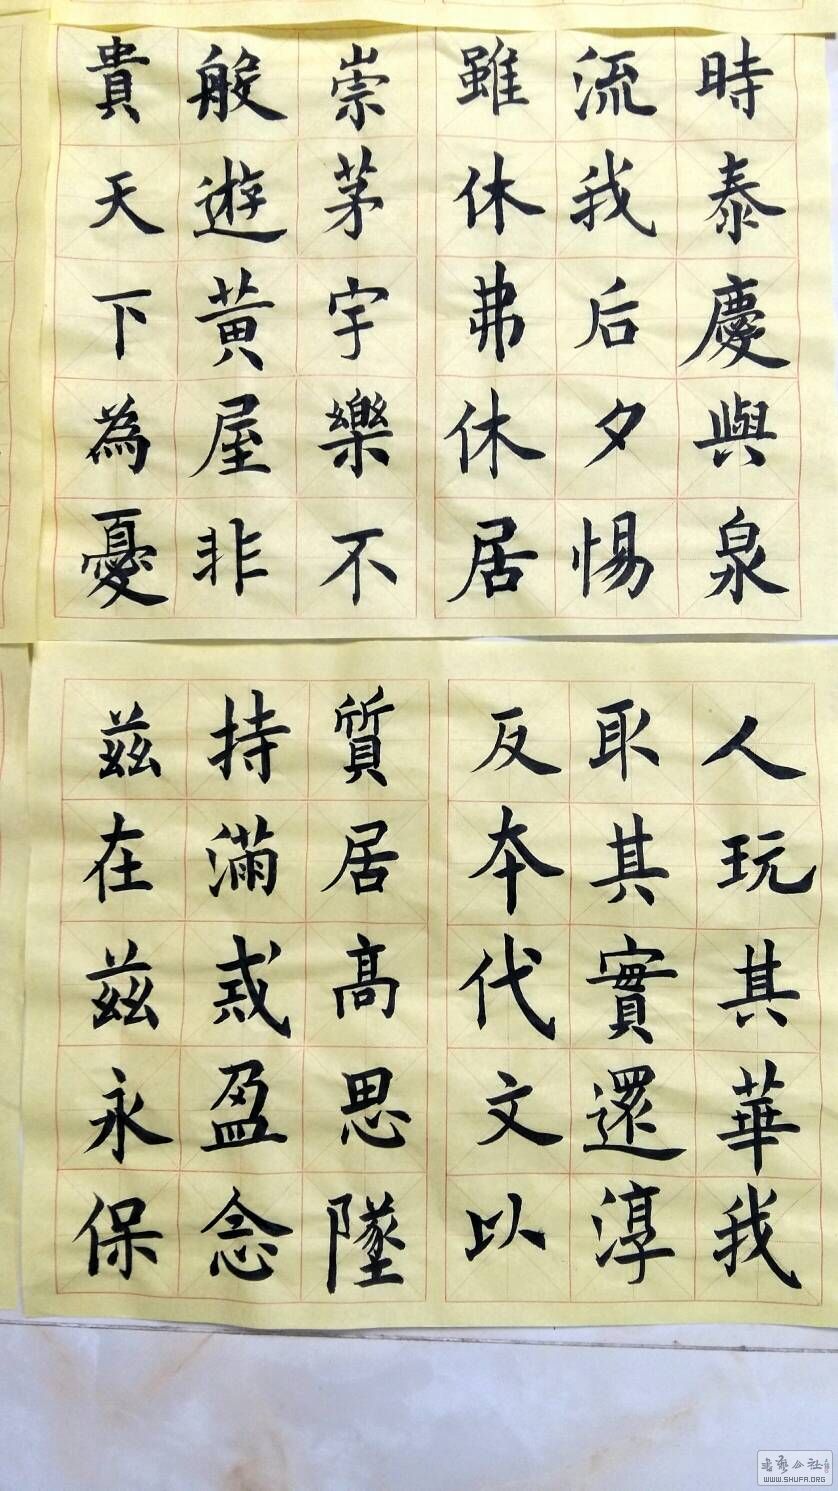 時泰慶與泉
流我后夕惕
雖休弗休居
崇茅宇樂不
般遊黄屋非
貴天下為憂
人玩其華我
取其實還淳
反本代文以
質居高思墜
持滿戒盈念
茲在茲永保
書藝公社
WWW.SHUFA.ORG